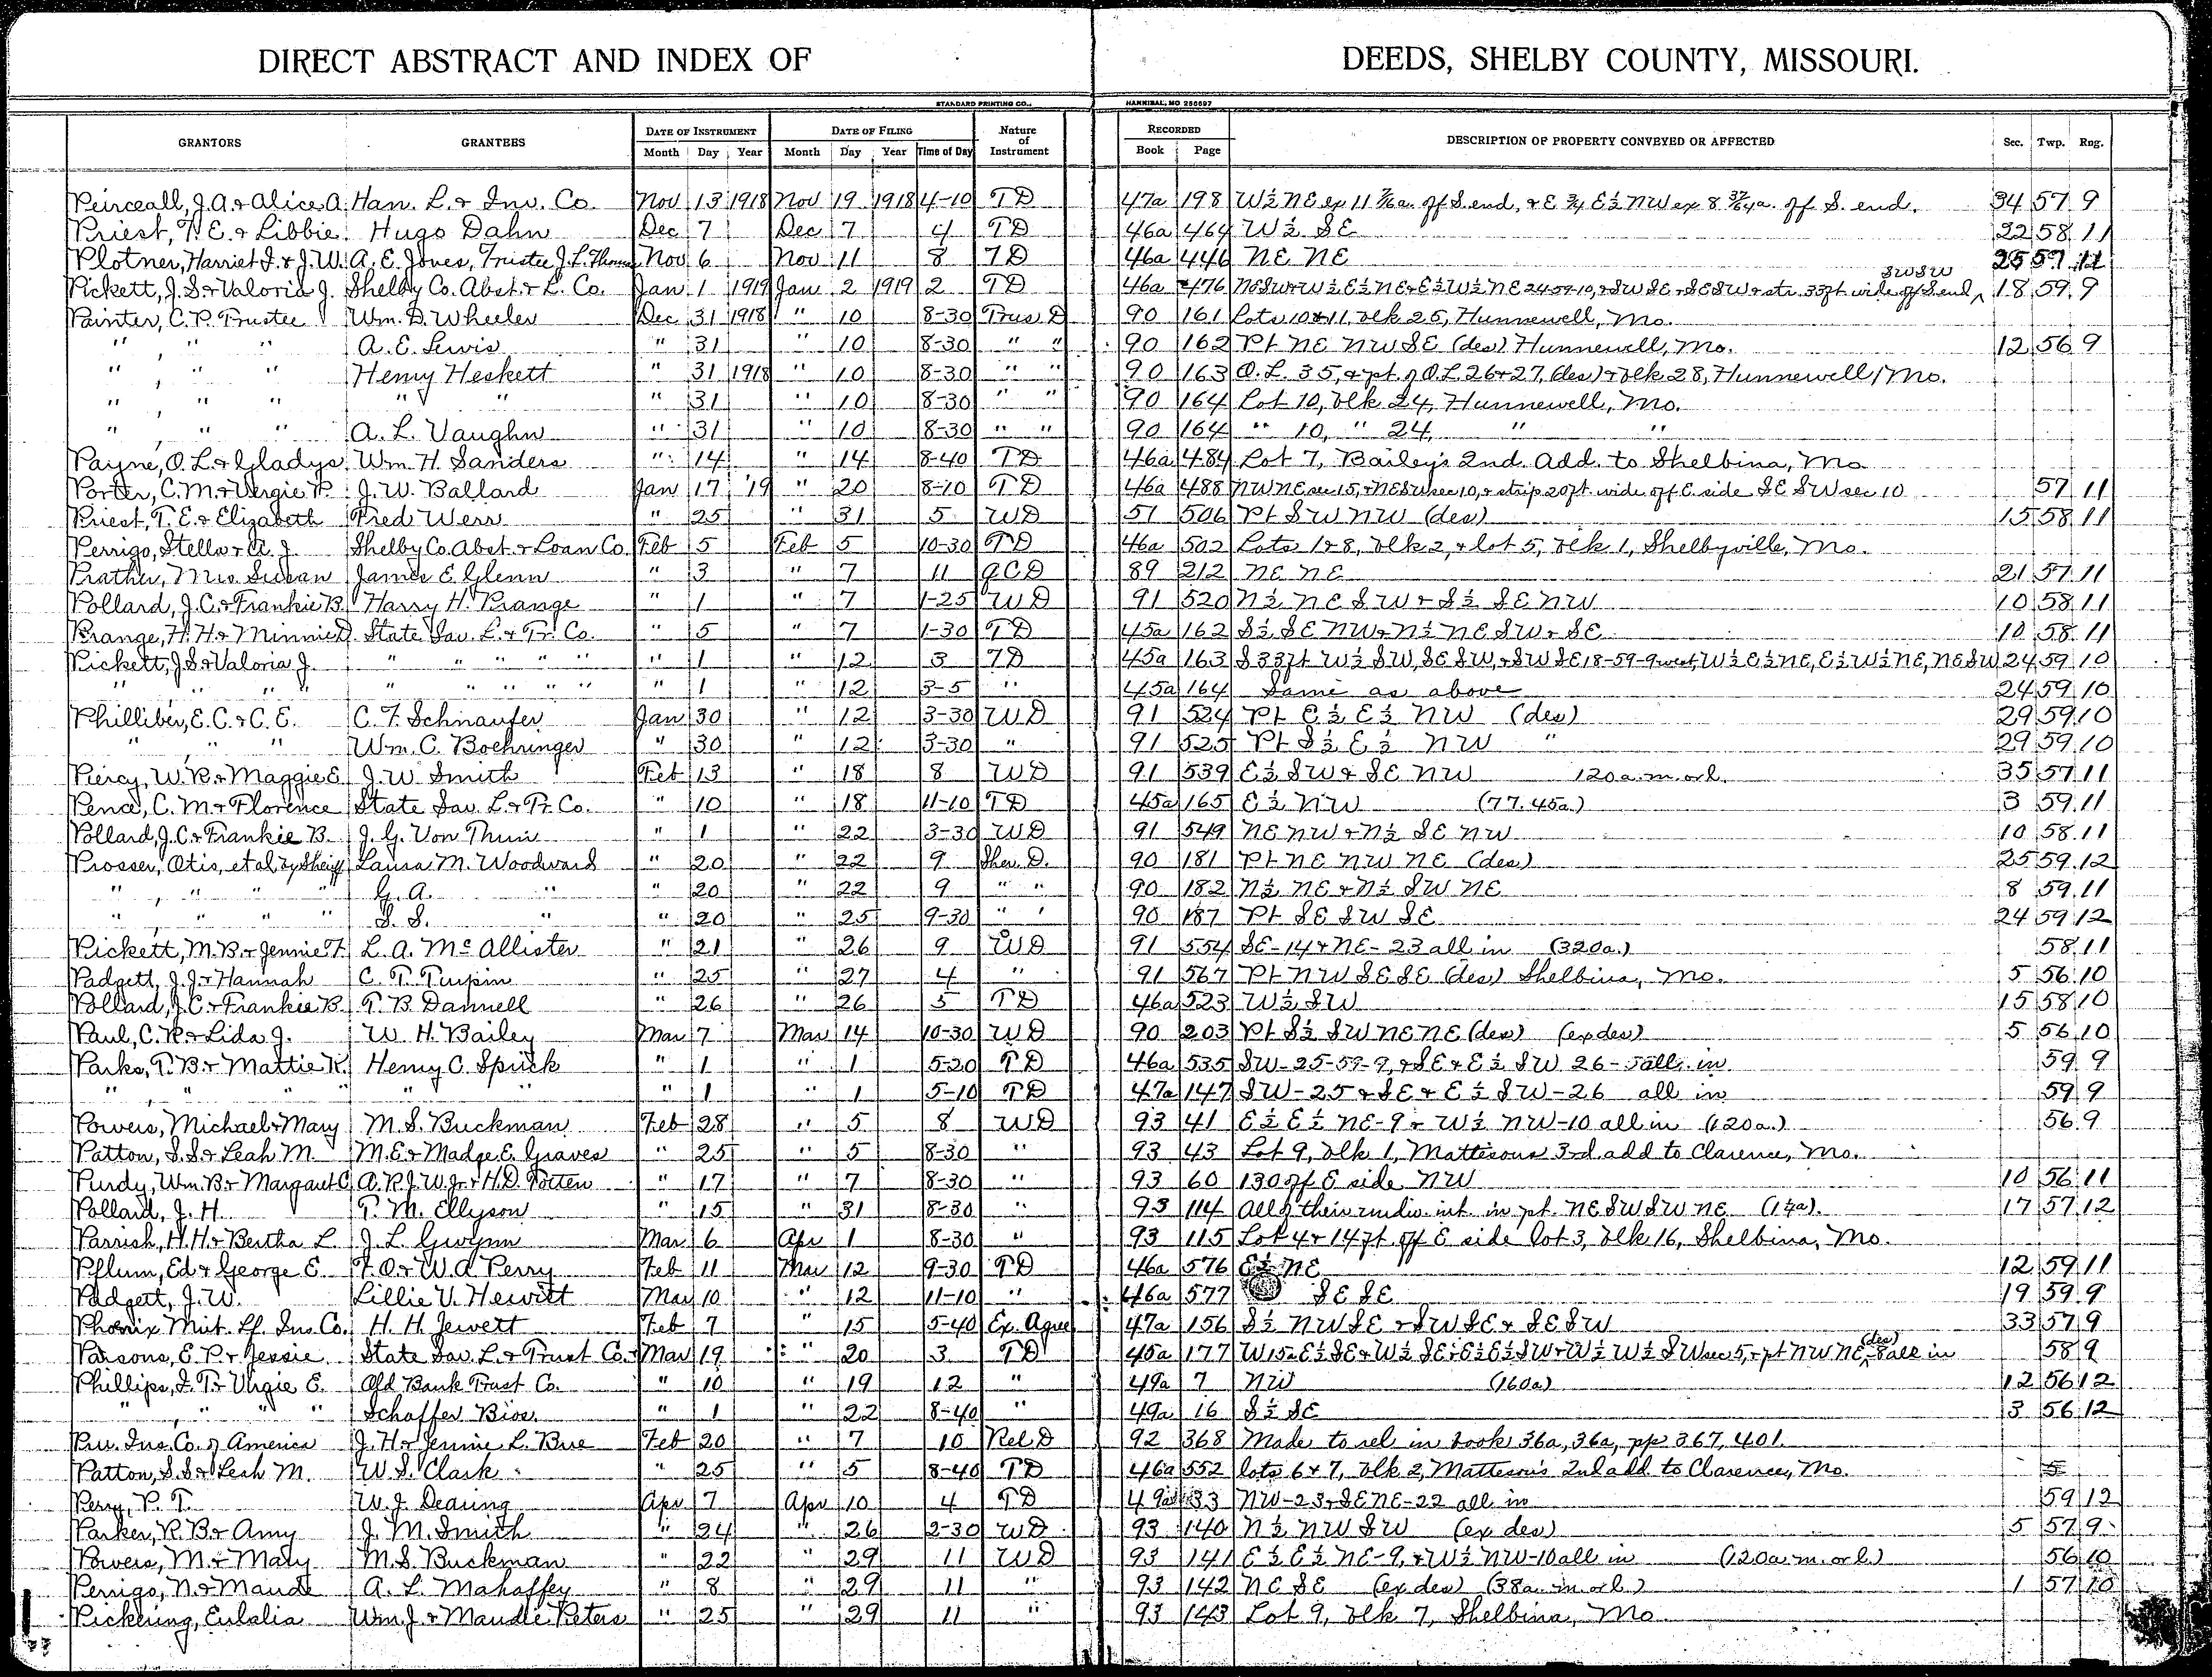 DIRECT ABSTRACT AND INDEX OF DEEDS, SHELBY COUNTY, MISSOURI.
STANDARD PRINTING CO., HANNIBAL, MO 256697
GRANTORS GRANTEES DATE OF INSTRUMENT Month Day Year DATE OF FILING Month Day Year Time of Day Nature of Instrument RECORDED Book Page DESCRIPTION OF PROPERTY CONVEYED OR AFFECTED Sec. Twp. Rng.
Peirceall, J.A. & Alice A. Han. L. & Inv. Co. Nov 13 1918 Nov 19 1918 4-10 TD 47a 198 W½ NE ex 11 7/16a. off S. end, & E ¾ E½ NW ex 8 37/64a. off S. end. 34 57 9
Priest, T. E. & Libbie Hugo Dahn Dec 7 Dec 7 4 TD 46a 464 W½ SE 22 58 11
Plotner, Harriet J. & J.W. A. E. Jones, Trustee J.L. Thomas Nov 6 Nov 11 8 TD 46a 446 NE NE 25 57 11
Pickett, J.S. & Valoria J. Shelby Co. Abst. & L. Co. Jan 1 1919 Jan 2 1919 2 TD 46a 476 NESW & W½ E½ NE & E½ W½ NE 24-59-10, & SW SE & SE SW & str. 33ft wide off S end SWSW 18 59 9
Painter, C. P. Trustee Wm. D. Wheeler Dec 31 1918 " 10 8-30 Trus D 90 161 Lots 10 & 11, blk 25, Hunnewell, Mo.
" " " A. E. Lewis " 31 " 10 8-30 " " 90 162 Pt NE NW SE (des) Hunnewell, Mo. 12 56 9
" " " Henry Heskett " 31 1918 " 10 8-30 " " 90 163 O. L. 35, & pt. of O.L. 26 & 27, (des) & blk 28, Hunnewell, Mo.
" " " " " " 31 " 10 8-30 " " 90 164 Lot 10, blk 24, Hunnewell, Mo.
" " " A. L. Vaughn " 31 " 10 8-30 " " 90 164 " 10, " 24, " "
Payne, O. L. & Gladys Wm. H. Sanders " 14 " 14 8-40 TD 46a 484 Lot 7, Bailey's 2nd. Add. to Shelbina, Mo
Porter, C. M. & Vergie P. J. W. Ballard Jan 17 '19 " 20 8-10 TD 46a 488 NWNE sec 15, & NESW sec 10, & strip 20ft. wide off E. side SE SW sec 10 57 11
Priest, T. E. & Elizabeth Fred Werr " 25 " 31 5 WD 51 506 Pt SW NW (des) 15 58 11
Perrigo, Stella & A. J. Shelby Co. Abst. & Loan Co. Feb 5 Feb 5 10-30 TD 46a 502 Lots 1 & 8, blk 2, & lot 5, blk 1, Shelbyville, Mo.
Prather, Mrs. Susan James E. Glenn " 3 " 7 11 QCD 89 212 NE NE 21 57 11
Pollard, J. C. & Frankie B. Harry H. Prange " 1 " 7 1-25 WD 91 520 N½ NE SW & S½ SE NW 10 58 11
Prange, H. H. & Minnie D. State Sav. L. & Tr. Co. " 5 " 7 1-30 TD 45a 162 S½ SE NW & N½ NE SW & SE 10 58 11
Pickett, J.S. & Valoria J. " " " " " " 1 " 12 3 TD 45a 163 S 33ft W½ SW, SE SW, & SW SE 18-59-9 west, W½ E½ NE, E½ W½ NE, NE SW 24 59 10
" " " " " " " " " 1 " 12 3-5 " 45a 164 Same as above 24 59 10
Philliber, E. C. & C. E. C. F. Schnaufer Jan 30 " 12 3-30 WD 91 524 Pt E½ E½ NW (des) 29 59 10
" " " Wm. C. Boehringer " 30 " 12 3-30 " 91 525 Pt S½ E½ NW " 29 59 10
Piercy, W. R. & Maggie E. J. W. Smith Feb 13 " 18 8 WD 91 539 E½ SW & SE NW 120a. m. or l. 35 57 11
Pence, C. M. & Florence State Sav. L. & Tr. Co. " 10 " 18 11-10 TD 45a 165 E½ NW (77.45a.) 3 59 11
Pollard, J.C. & Frankie B. J. G. Von Thun " 1 " 22 3-30 WD 91 549 NE NW & N½ SE NW 10 58 11
Prosser, Otis, et al by Sheriff Laura M. Woodward " 20 " 22 9 Sher. D. 90 181 Pt NE NW NE (des) 25 59 12
" " " " G. A. " " 20 " 22 9 " " 90 182 N½ NE & N½ SW NE 8 59 11
" " " " S. S. " " 20 " 25 9-30 " " 90 187 Pt SE SW SE 24 59 12
Pickett, M. B. & Jennie F. L. A. McAllister " 21 " 26 9 WD 91 554 SE-14 & NE-23 all in (320a.) 58 11
Padgett, J. J. & Hannah C. T. Turpin " 25 " 27 4 " 91 567 Pt NW SE SE (des) Shelbina, Mo. 5 56 10
Pollard, J. C. & Frankie B. T. B. Dannell " 26 " 26 5 TD 46a 523 W½ SW 15 58 10
Paul, C. R. & Lida J. W. H. Bailey Mar 7 Mar 14 10-30 WD 90 203 Pt S½ SW NE NE (des) (ex des) 5 56 10
Parks, T. B. & Mattie R. Henry C. Spuck " 1 " 1 5-20 TD 46a 535 SW-25-59-9, & SE & E½ SW 26- all in 59 9
" " " " " " " 1 " 1 5-10 TD 47a 147 SW-25 & SE & E½ SW-26 all in 59 9
Powers, Michael & Mary M. S. Buckman Feb 28 " 5 8 WD 93 41 E½ E½ NE-9 & W½ NW-10 all in (120a.) 56 9
Patton, S. S. & Leah M. M. E. & Madge E. Graves " 25 " 5 8-30 " 93 43 Lot 9, blk 1, Mattesons 3rd. add to Clarence, Mo.
Purdy, Wm. B. & Margaret C. A. R. J. W. Jr. & H. D. Totten " 17 " 7 8-30 " 93 60 130 of E side NW 10 56 11
Pollard, J. H. T. M. Ellyson " 15 " 31 8-30 " 93 114 All of their undiv. int. in pt. NE SW SW NE (1¼a). 17 57 12
Parrish, H. H. & Bertha L. J. L. Gwynn Mar 6 Apr 1 8-30 " 93 115 Lot 4 & 14ft off E side lot 3, blk 16, Shelbina, Mo.
Pflum, Ed & George E. F. O. & W. A. Perry Feb 11 Mar 12 9-30 TD 46a 576 E½ NE 12 59 11
Padgett, J. W. Lillie V. Hewitt Mar 10 " 12 11-10 " 46a 577 SE SE 19 59 9
Phoenix Mut. Lf. Ins Co. H. H. Jewett Feb 7 " 15 5-40 Ex. Agree 47a 156 S½ NW SE & SW SE & SE SW 33 57 9
Parsons, E. P. & Jessie State Sav. L. & Trust Co. Mar 19 " 20 3 TD 45a 177 W 15a E½ SE & W½ SE & E½ E½ SW & W½ W½ SW sec 5, & pt NW NE (des) -8 all in 58 9
Phillips, J. T. & Virgie E. Old Bank Trust Co. " 10 " 19 12 " 49a 7 NW (160a) 12 56 12
" " " " Schaffer Bros. " 1 " 22 8-40 " 49a 16 S½ SE 3 56 12
Pru. Ins. Co. of America J. H. & Jennie L. Bue Feb 20 " 7 10 Rel D 92 368 Made to rel in book 36a, 36a, pp 367, 401.
Patton, S. S. & Leah M. W. S. Clark " 25 " 5 8-40 TD 46a 552 lots 6 & 7, blk 2, Matteson's 2nd add to Clarence, Mo.
Perry, P. T. W. J. Dearing Apr 7 Apr 10 4 TD 49a 33 NW-23 & SE NE-22 all in 59 12
Parker, R. B. & Amy J. M. Smith " 24 " 26 2-30 WD 93 140 N½ NW SW (ex des) 5 57 9
Powers, M. & Mary M. S. Buckman " 22 " 29 11 WD 93 141 E½ E½ NE-9, & W½ NW-10 all in (120a. m. or l.) 56 10
Perrigo, N. & Maude A. L. Mahaffey " 8 " 29 11 " 93 142 NE SE (ex des) (38a. m. or l.) 1 57 10
Pickering, Eulalia Wm. J. & Maudie Peters " 25 " 29 11 " 93 143 Lot 9, blk 7, Shelbina, Mo